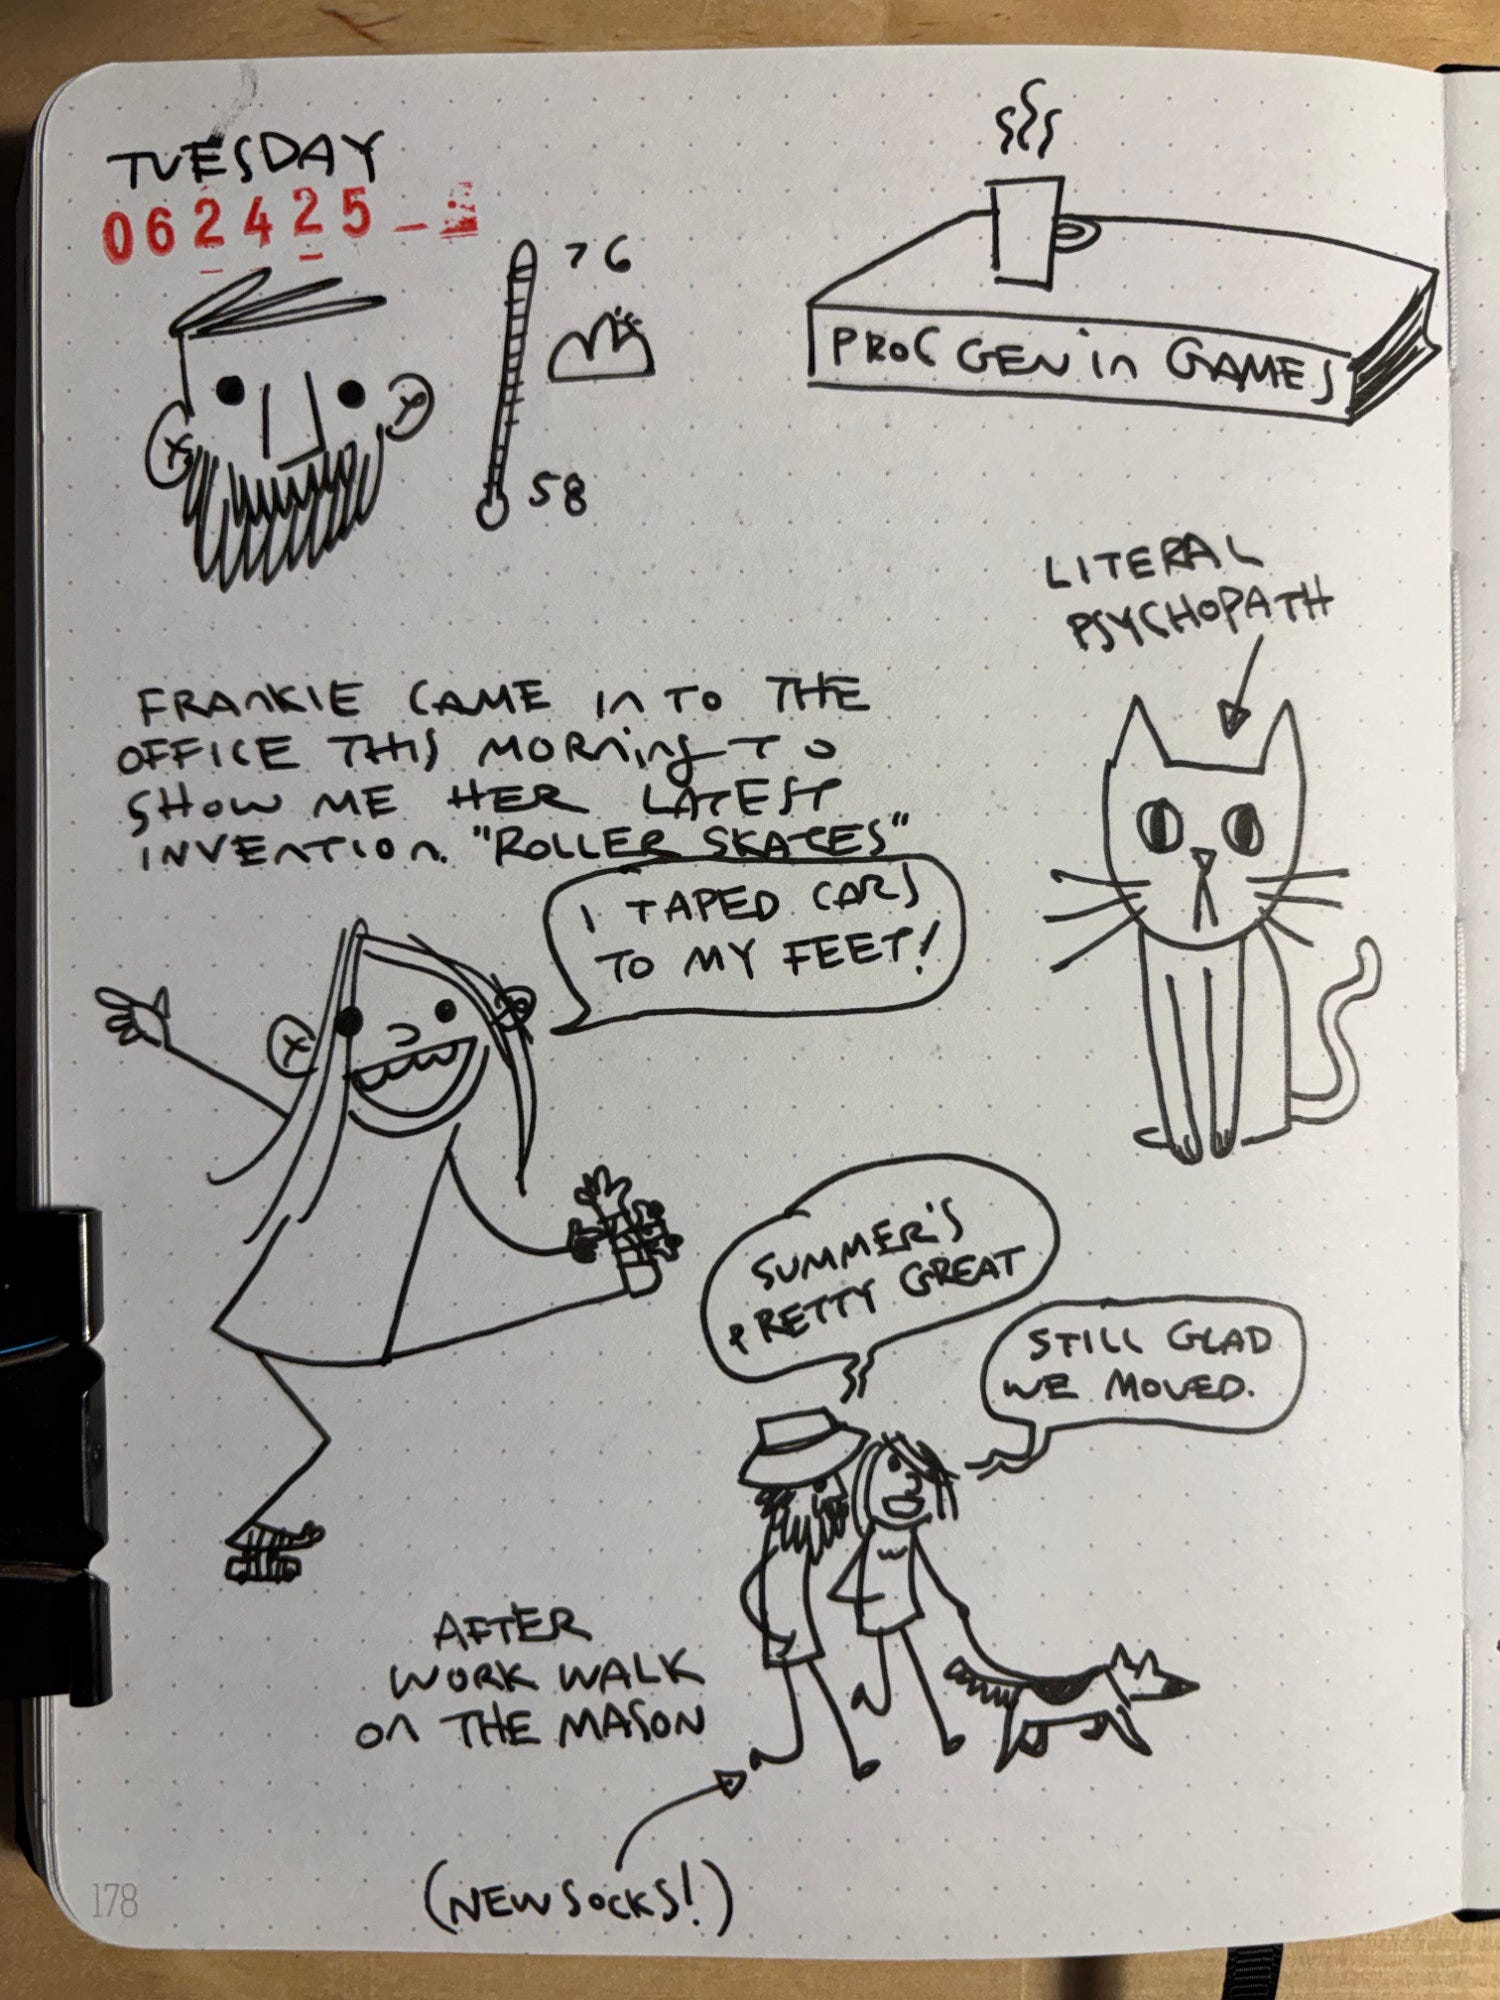 TUESDAY
062425
76
58
PROC GEN in GAMES
LITERAL
PSYCHOPATH
FRANKIE CAME INTO THE
OFFICE THIS MORNING TO
SHOW ME HER LATEST
INVENTION. "ROLLER SKATES"
I TAPED CARS
TO MY FEET!
SUMMER'S
PRETTY GREAT
STILL GLAD
WE MOVED.
AFTER
WORK WALK
ON THE MASON
(NEW SOCKS!)
178